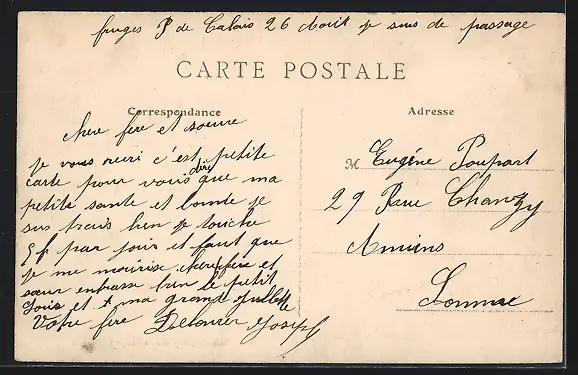 fruges P de Calais 26 Aout je suis de passage
CARTE POSTALE
Correspondance
Adresse
chere fere et soeure
je vous recri c'est petite
carte pour vous dire que ma
petite sante et bonne je
sus trais bien je touche
5 f par jour et faut que
je me nourise chere fere et
sœur enbrasse bien le petit
Louis et ma grand Juliette
Votre fere Delourer Joseph
M Eugéne Poupart
29 Rue Chanzy
Amiens
Somme